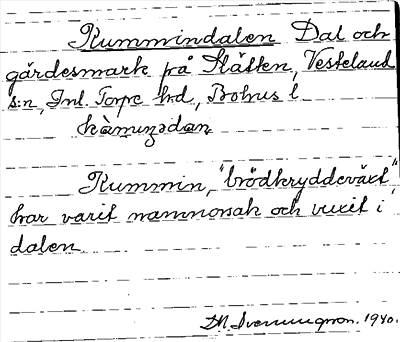 Kummindalen Dal och
gärdesmark på Slätten, Vesteland
s:n, Inl. Torpe hd, Bohus l.
Kummin, "brödkryddeväxt"
har varit namnorsak och vuxit i
dalen
1940.